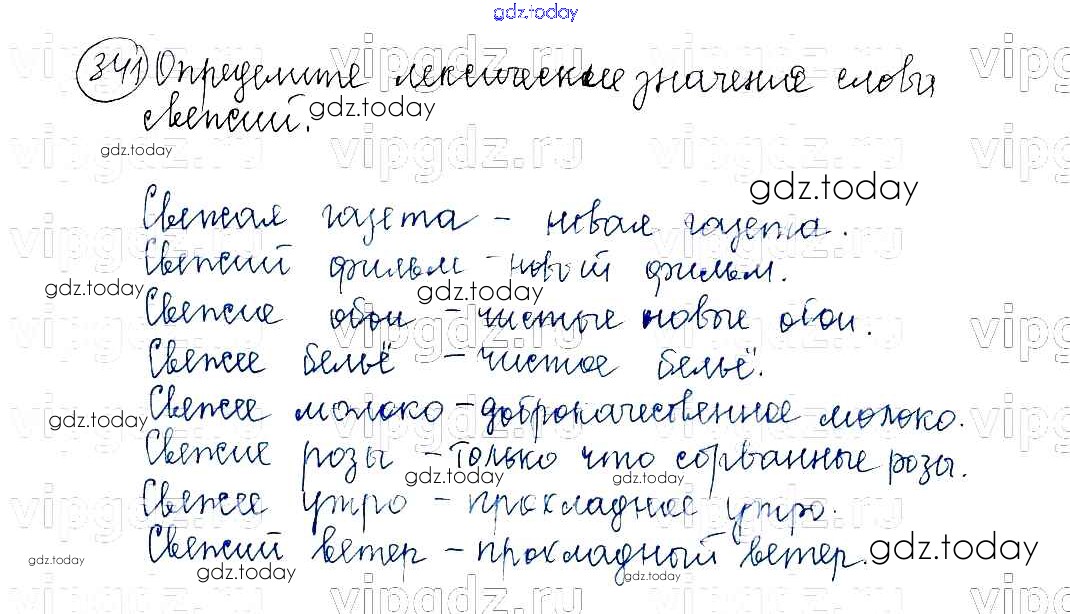 gdz.today
341 Определите лексическое значение слова
свежий.
gdz.today
gdz.today
Свежая газета – новая газета.
gdz.today
Свежий фильм – новый фильм.
gdz.today
gdz.today
Свежие обои – чистые новые обои.
Свежее бельё – чистое бельё.
Свежее молоко – доброкачественное молоко.
gdz.today
Свежие розы – только что сорванные розы.
gdz.today
gdz.today
Свежее утро – прохладное утро.
Свежий ветер – прохладный ветер.
gdz.today
gdz.today
gdz.today
gdz.today
vipgdz.ru